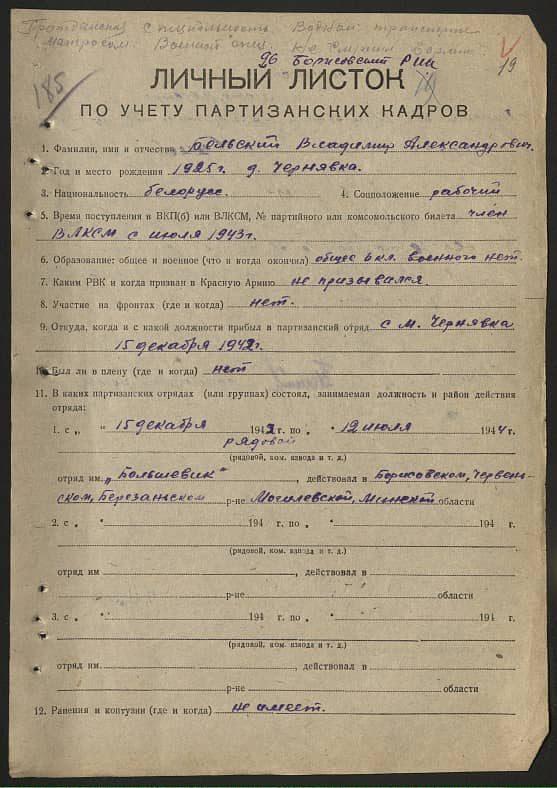 Гражданская специальность Водный транспорт
матросом. Военной спец. не
96 Борисовский РИК
185
19
ЛИЧНЫЙ ЛИСТОК
ПО УЧЕТУ ПАРТИЗАНСКИХ КАДРОВ
1. Фамилия, имя и отчество Владимир Александрович.
2. Год и место рождения 1925г. д. Чернявка.
3. Национальность белорусс. 4. Соцположение рабочий
5. Время поступления в ВКП(б) или ВЛКСМ, № партийного или комсомольского билета член
ВЛКСМ с июля 1943г.
6. Образование: общее и военное (что и когда окончил) общее 6 кл. военного нет.
7. Каким РВК и когда призван в Красную Армию не призывался.
8. Участие на фронтах (где и когда) нет.
9. Откуда, когда и с какой должности прибыл в партизанский отряд с м. Чернявка
15 декабря 1942г.
10. Был ли в плену (где и когда) нет
11. В каких партизанских отрядах (или группах) состоял, занимаемая должность и район действия
отряда:
1. с „ " 15 декабря 1942 г. по „ " 12 июля 1944 г.
рядовой
(рядовой, ком. взвода и т. д.)
отряд им. „Большевик", действовал в Борисовском, Червень-
ском, Березинском р-не Могилевской, Минской области
2. с „ " 194 г. по „ " 194 г.
(рядовой, ком. взвода и т. д.)
отряд им , действовал в
р-не области
3. с „ " 194 г. по „ " 194 г.
(рядовой, ком. взвода и т. д.)
отряд им. , действовал в
р-не области
12. Ранения и контузии (где и когда) не имеет.